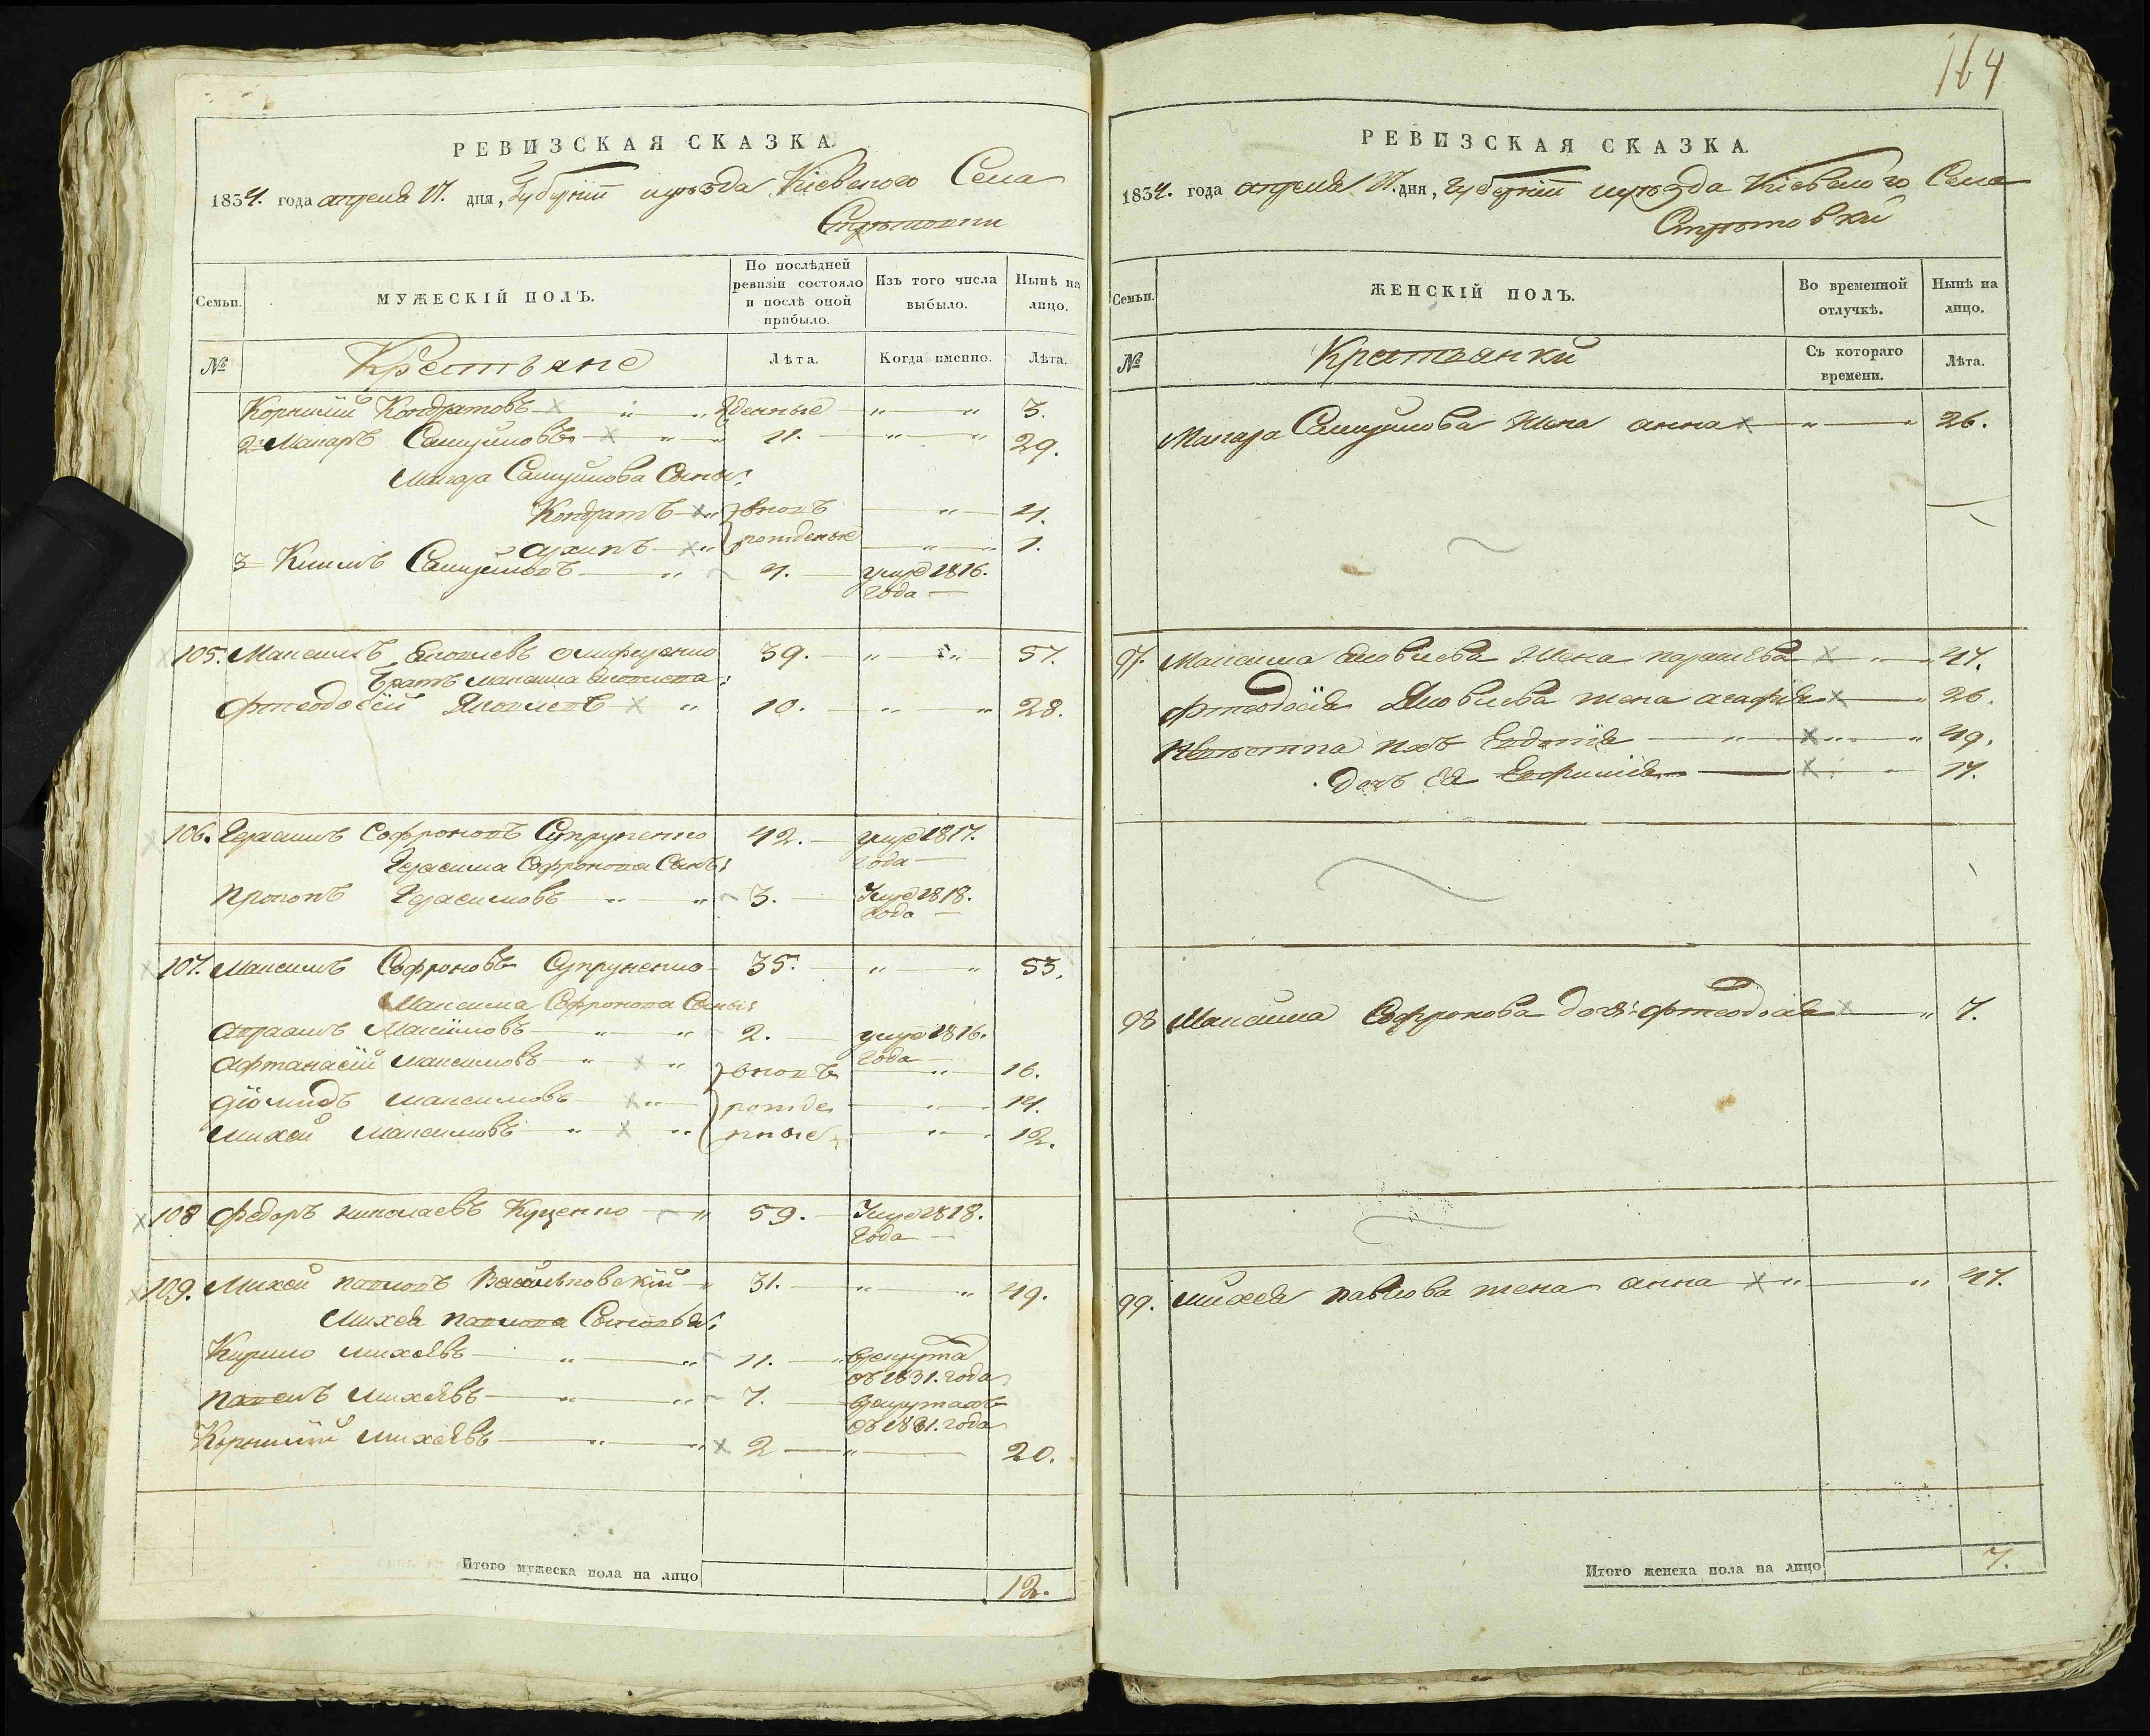 РЕВИЗСКАЯ СКАЗКА
1834. года апреля 17. дня, Губернии и уѣзда Кіевскаго Села
Стрѣтовки
Семьи.
МУЖЕСКІЙ ПОЛЪ.
По послѣдней ревизіи состояло и послѣ оной прибыло.
Изъ того числа выбыло.
Нынѣ на лицо.
№
Крестьяне
Лѣта.
Когда именно.
Лѣта.
Корнилий Кондратовъ денные 3.
2 Макаръ Самуйловъ 11. 29.
Макара Самуйлова Сыны:
Кондратъ вновь 4.
Архипъ рожденые 1.
3 Климъ Самуйловъ 4. умре 1816.
года
105. Максимъ Яковлевъ 39. 57.
Братъ Максима Яковлева:
Фтеодосій Яковлевъ 10. 28.
106. Герасимъ Софроновъ Супруненко 42. умре 1817.
года
Герасима Софронова Сынъ:
Прокопъ Герасимовъ 3. Умре 1818.
года
107. Максимъ Софроновъ Супруненко 35. 53.
Максима Софронова Сыны:
Абраамъ Максимовъ 2. умре 1816.
года
Афтанасій Максимовъ вновь 16.
Діомидъ Максимовъ рожде 14.
Михей Максимовъ нные 12.
108 Федоръ Николаевъ Куценко 59. Умре 1818.
года
109. Михей Павловъ Васильковскій 31. 49.
Михея Павлова Сыновья:
Кирило Михѣевъ 11. врекрута
въ 1831. года
Павелъ Михѣевъ 7.
въ 1831. года
Корнилий Михѣевъ 2 20.
Итого мужеска пола на лицо 12.
164
РЕВИЗСКАЯ СКАЗКА.
1834. года апреля 17. дня, Губернии и уѣзда Кіевскаго Села
Стрѣтовки
Семьи.
ЖЕНСКІЙ ПОЛЪ.
Во временной отлучкѣ.
Нынѣ на лицо.
№
Крестьянки
Съ котораго времени.
Лѣта.
Макара Самуйлова жена анна 26.
97. Максима Яковлева жена 47.
Фтеодосія Яковлева жена агафія 26.
Невѣстка ихъ Евдокія 49.
Дочь Ея Евфимія 17.
98 Максима Софронова дочь фтеодосія 7.
99. Михея Павлова жена анна 47.
Итого женска пола на лицо 7.